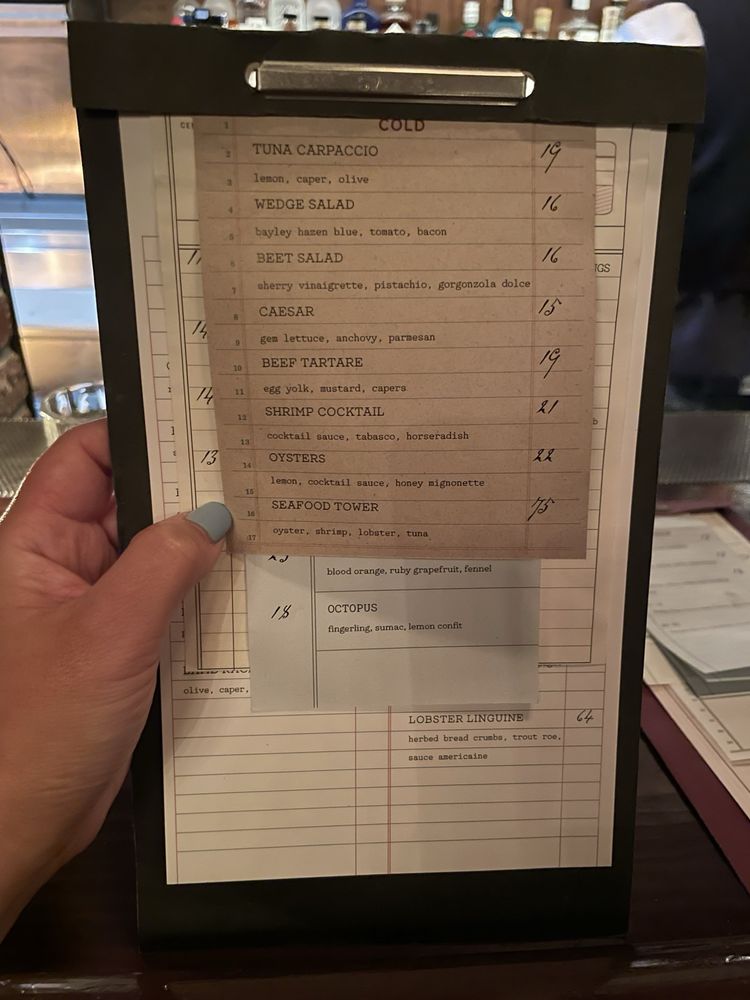 COLD
1
2 TUNA CARPACCIO 19
3 lemon, caper, olive
4 WEDGE SALAD 16
5 bayley hazen blue, tomato, bacon
6 BEET SALAD 16
7 sherry vinaigrette, pistachio, gorgonzola dolce
8 CAESAR 15
9 gem lettuce, anchovy, parmesan
10 BEEF TARTARE 19
11 egg yolk, mustard, capers
12 SHRIMP COCKTAIL 21
13 cocktail sauce, tabasco, horseradish
14 OYSTERS 22
15 lemon, cocktail sauce, honey mignonette
16 SEAFOOD TOWER 75
17 oyster, shrimp, lobster, tuna
14
14
13
blood orange, ruby grapefruit, fennel
18 OCTOPUS
fingerling, sumac, lemon confit
olive, caper,
LOBSTER LINGUINE 64
herbed bread crumbs, trout roe,
sauce americaine